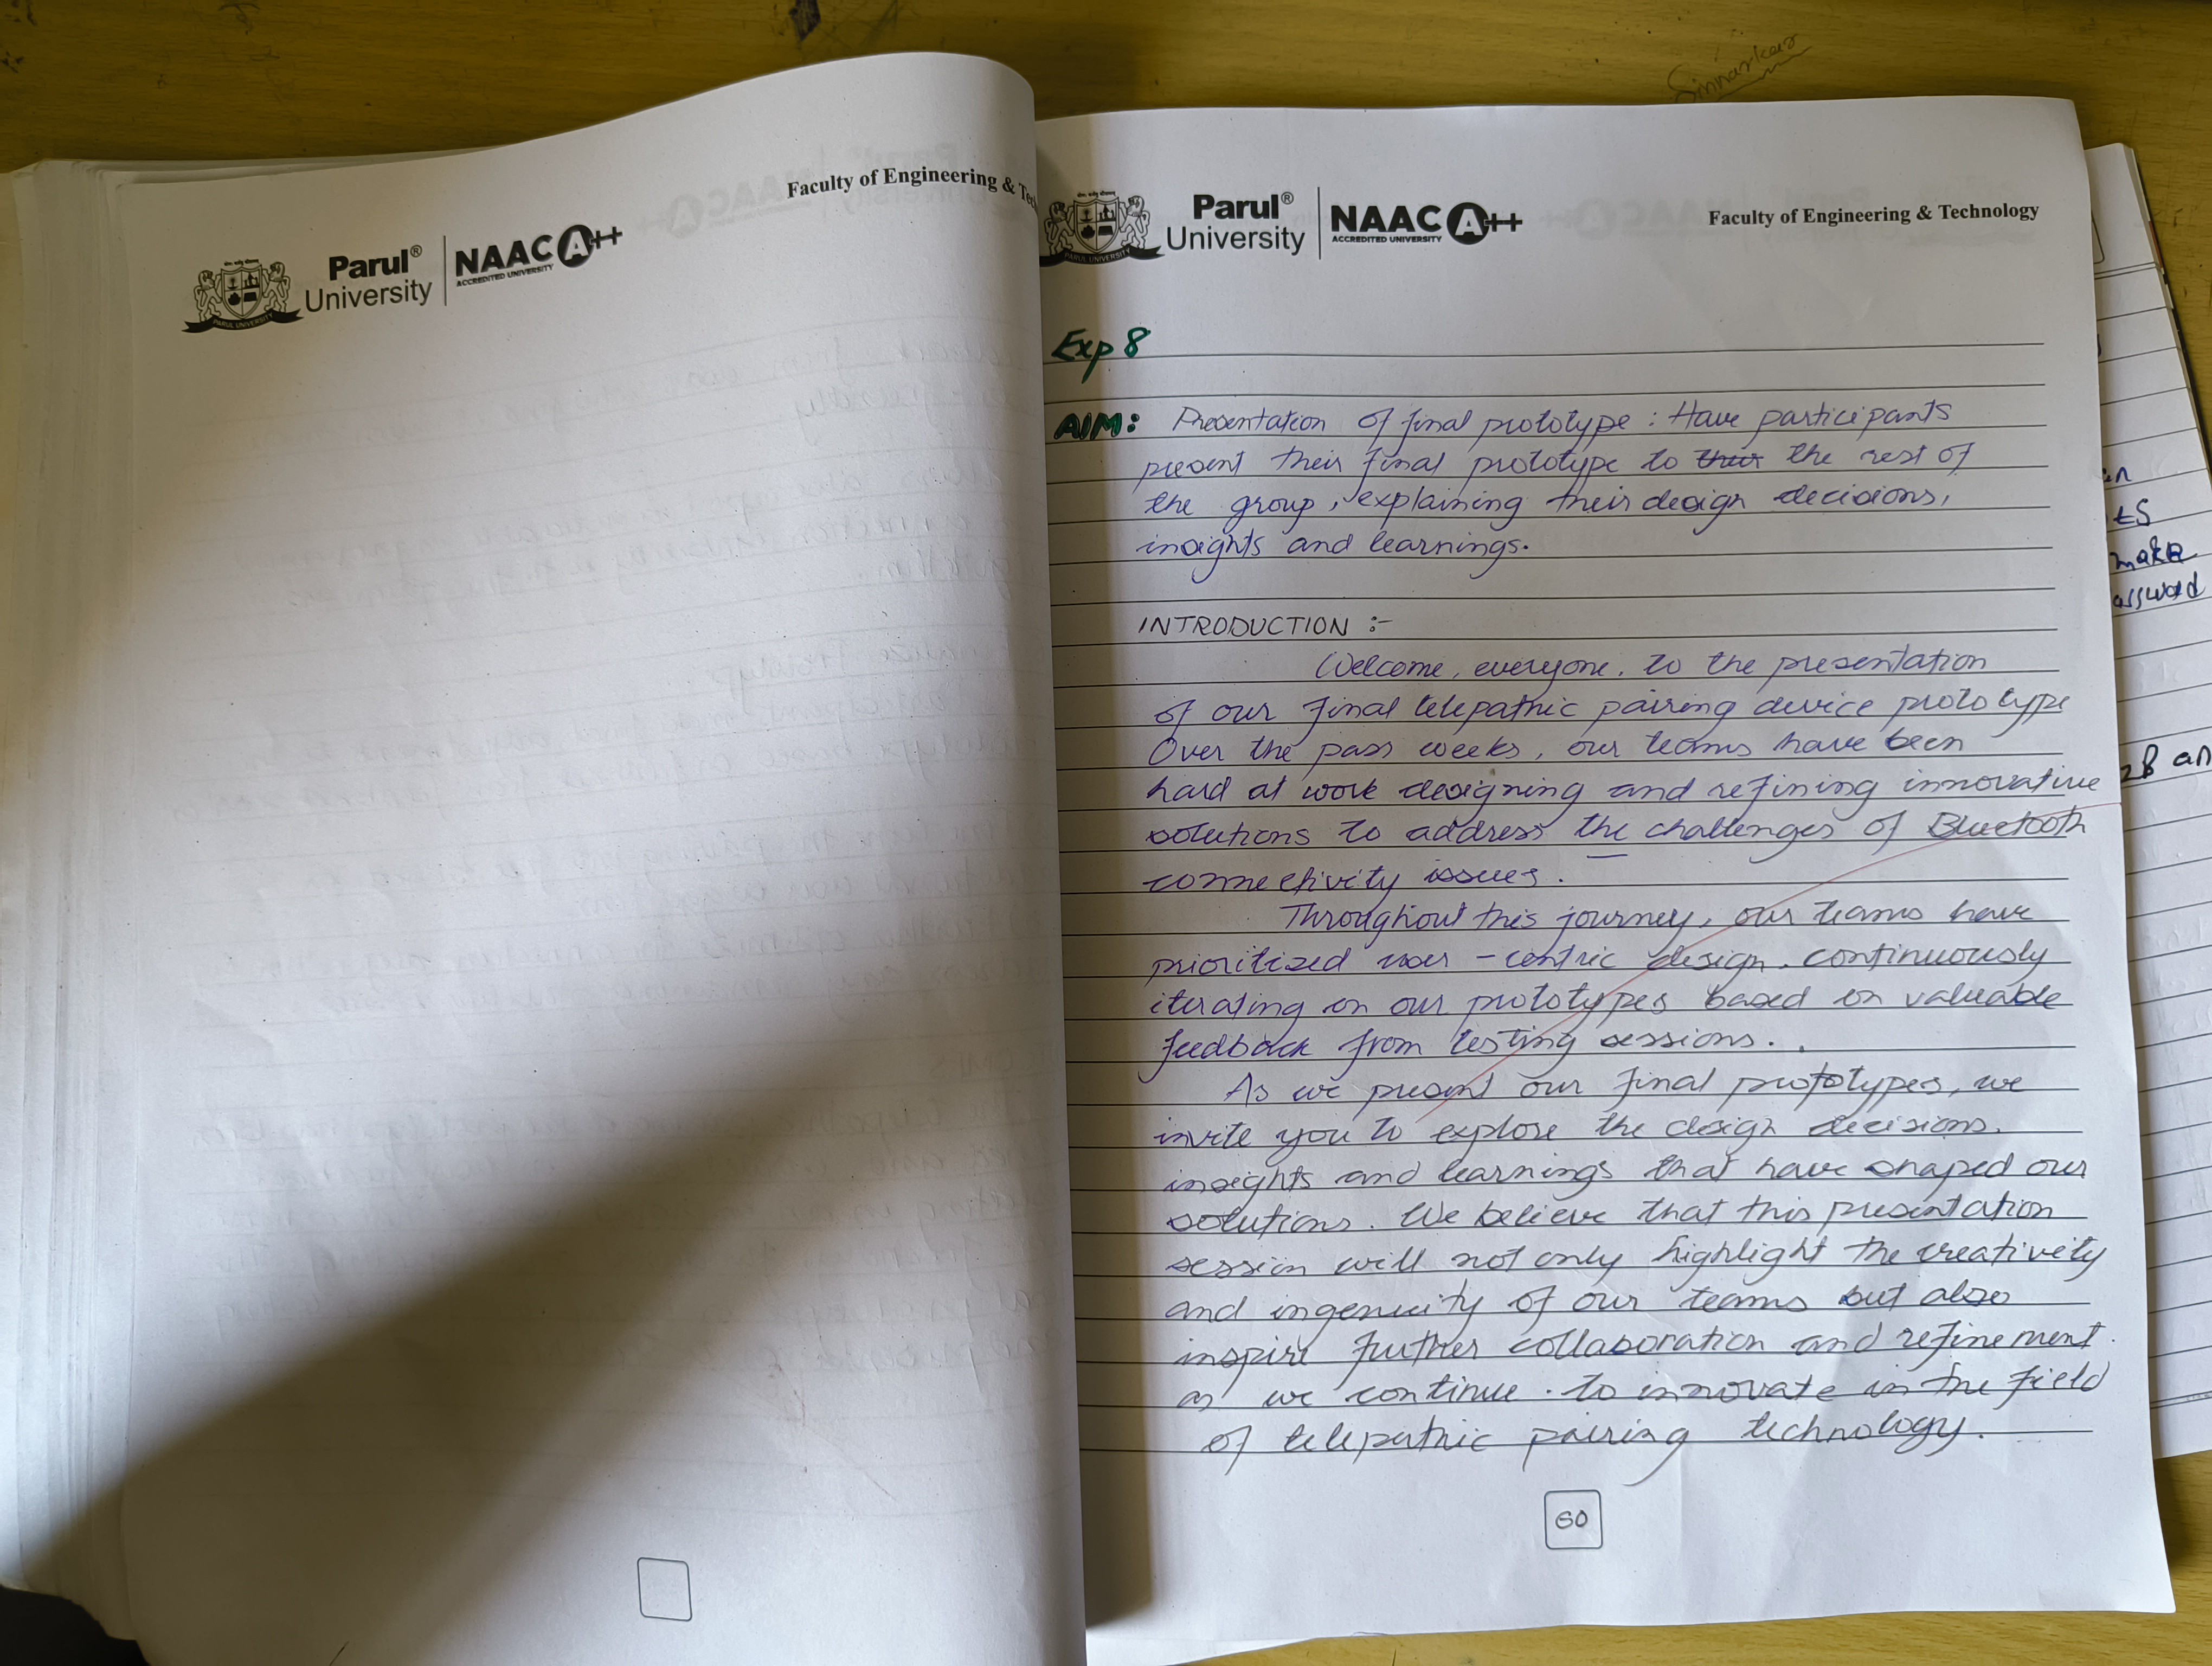 Sinnarkar
Faculty of Engineering & Tec
Parul® University
NAAC A++
ACCREDITED UNIVERSITY
PARUL UNIVERSITY
Parul® University
NAAC A++
ACCREDITED UNIVERSITY
PARUL UNIVERSITY
Faculty of Engineering & Technology
Exp 8
AIM: Presentation of final prototype : Have participants
present their final prototype to their the rest of
the group, explaining their design decisions,
insights and learnings.
INTRODUCTION :-
Welcome, everyone, to the presentation
of our final telepathic pairing device prototype
Over the pass weeks, our teams have been
hard at work designing and refining innovative
solutions to address the challenges of Bluetooth
connectivity issues.
Throughout this journey, our teams have
prioritized user-centric design, continuously
iterating on our prototypes based on valuable
feedback from testing sessions.
As we present our final prototypes, we
invite you to explore the design decisions.
insights and learnings that have shaped our
solutions. We believe that this presentation
session will not only highlight the creativity
and ingenuity of our teams but also
inspire further collaboration and refinement.
as we continue. to innovate in the field
of telepathic pairing technology.
60
ts
make
assword
an